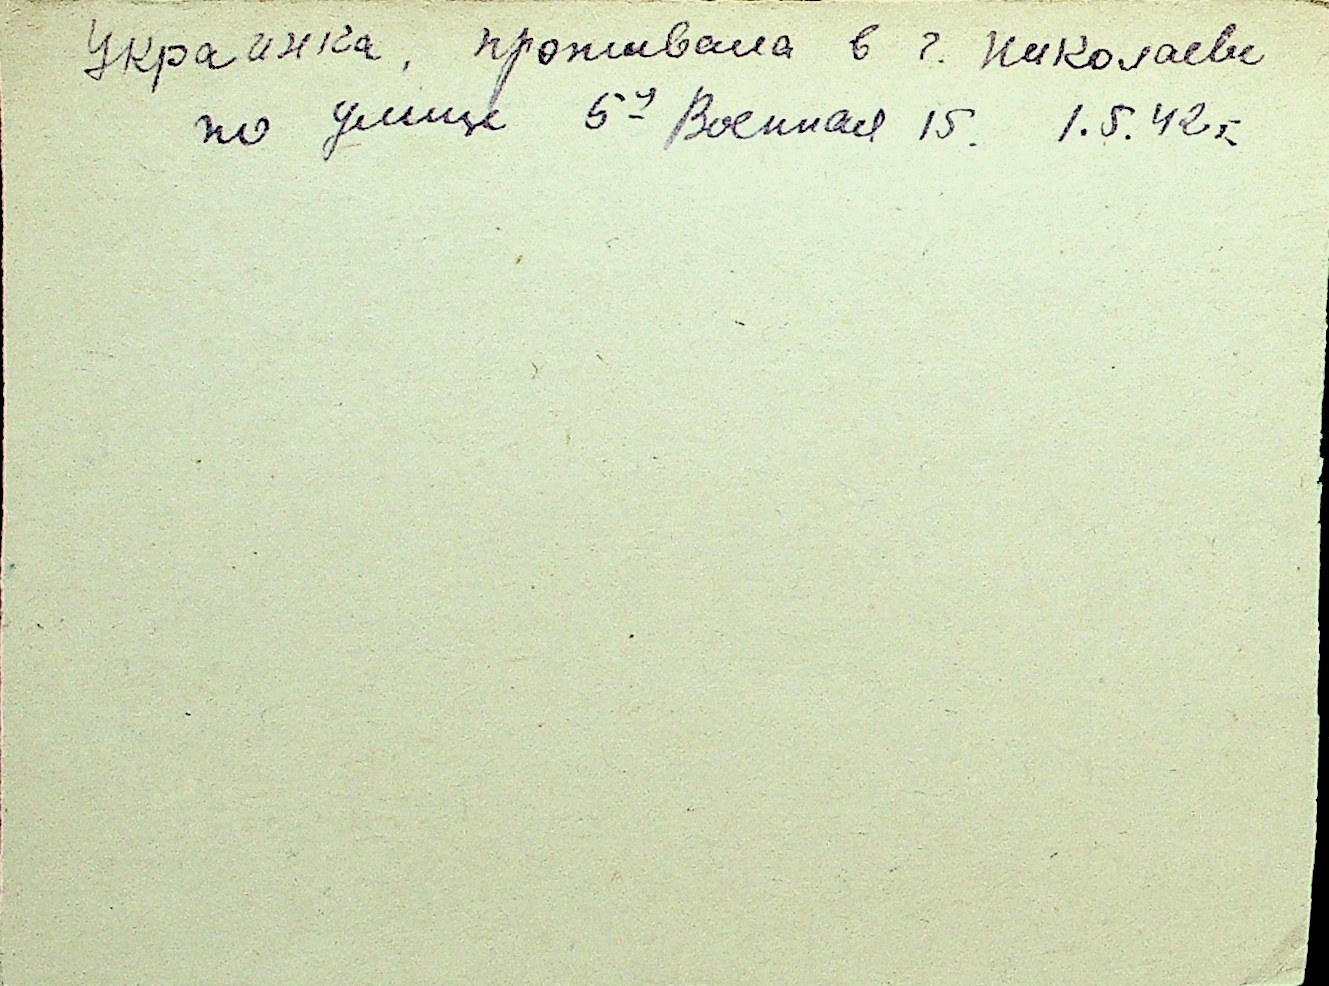 Украинка, проживала в г. Николаеве
по улице 5я Военная 15. 1.5.42 г.